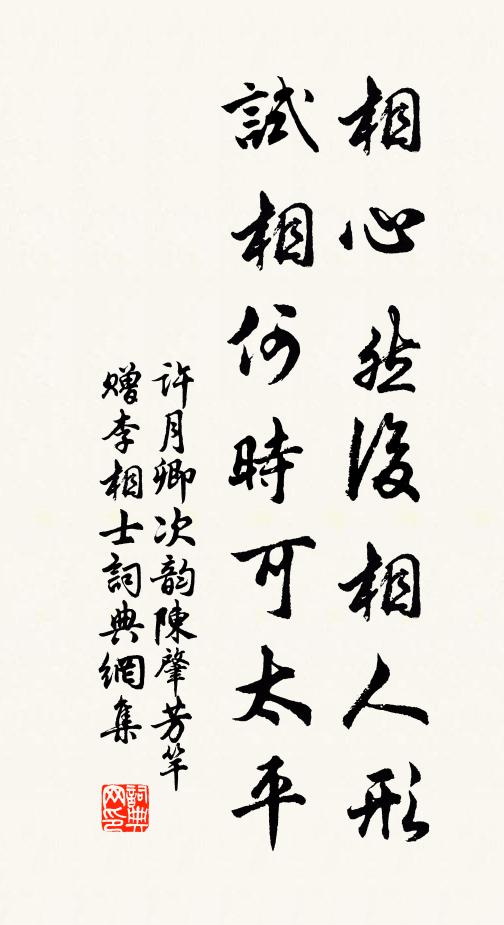 相心然後相人形
試相何時可太平
許月卿次韵陳肇芳竿
贈李相士詞典網集
詞典網印